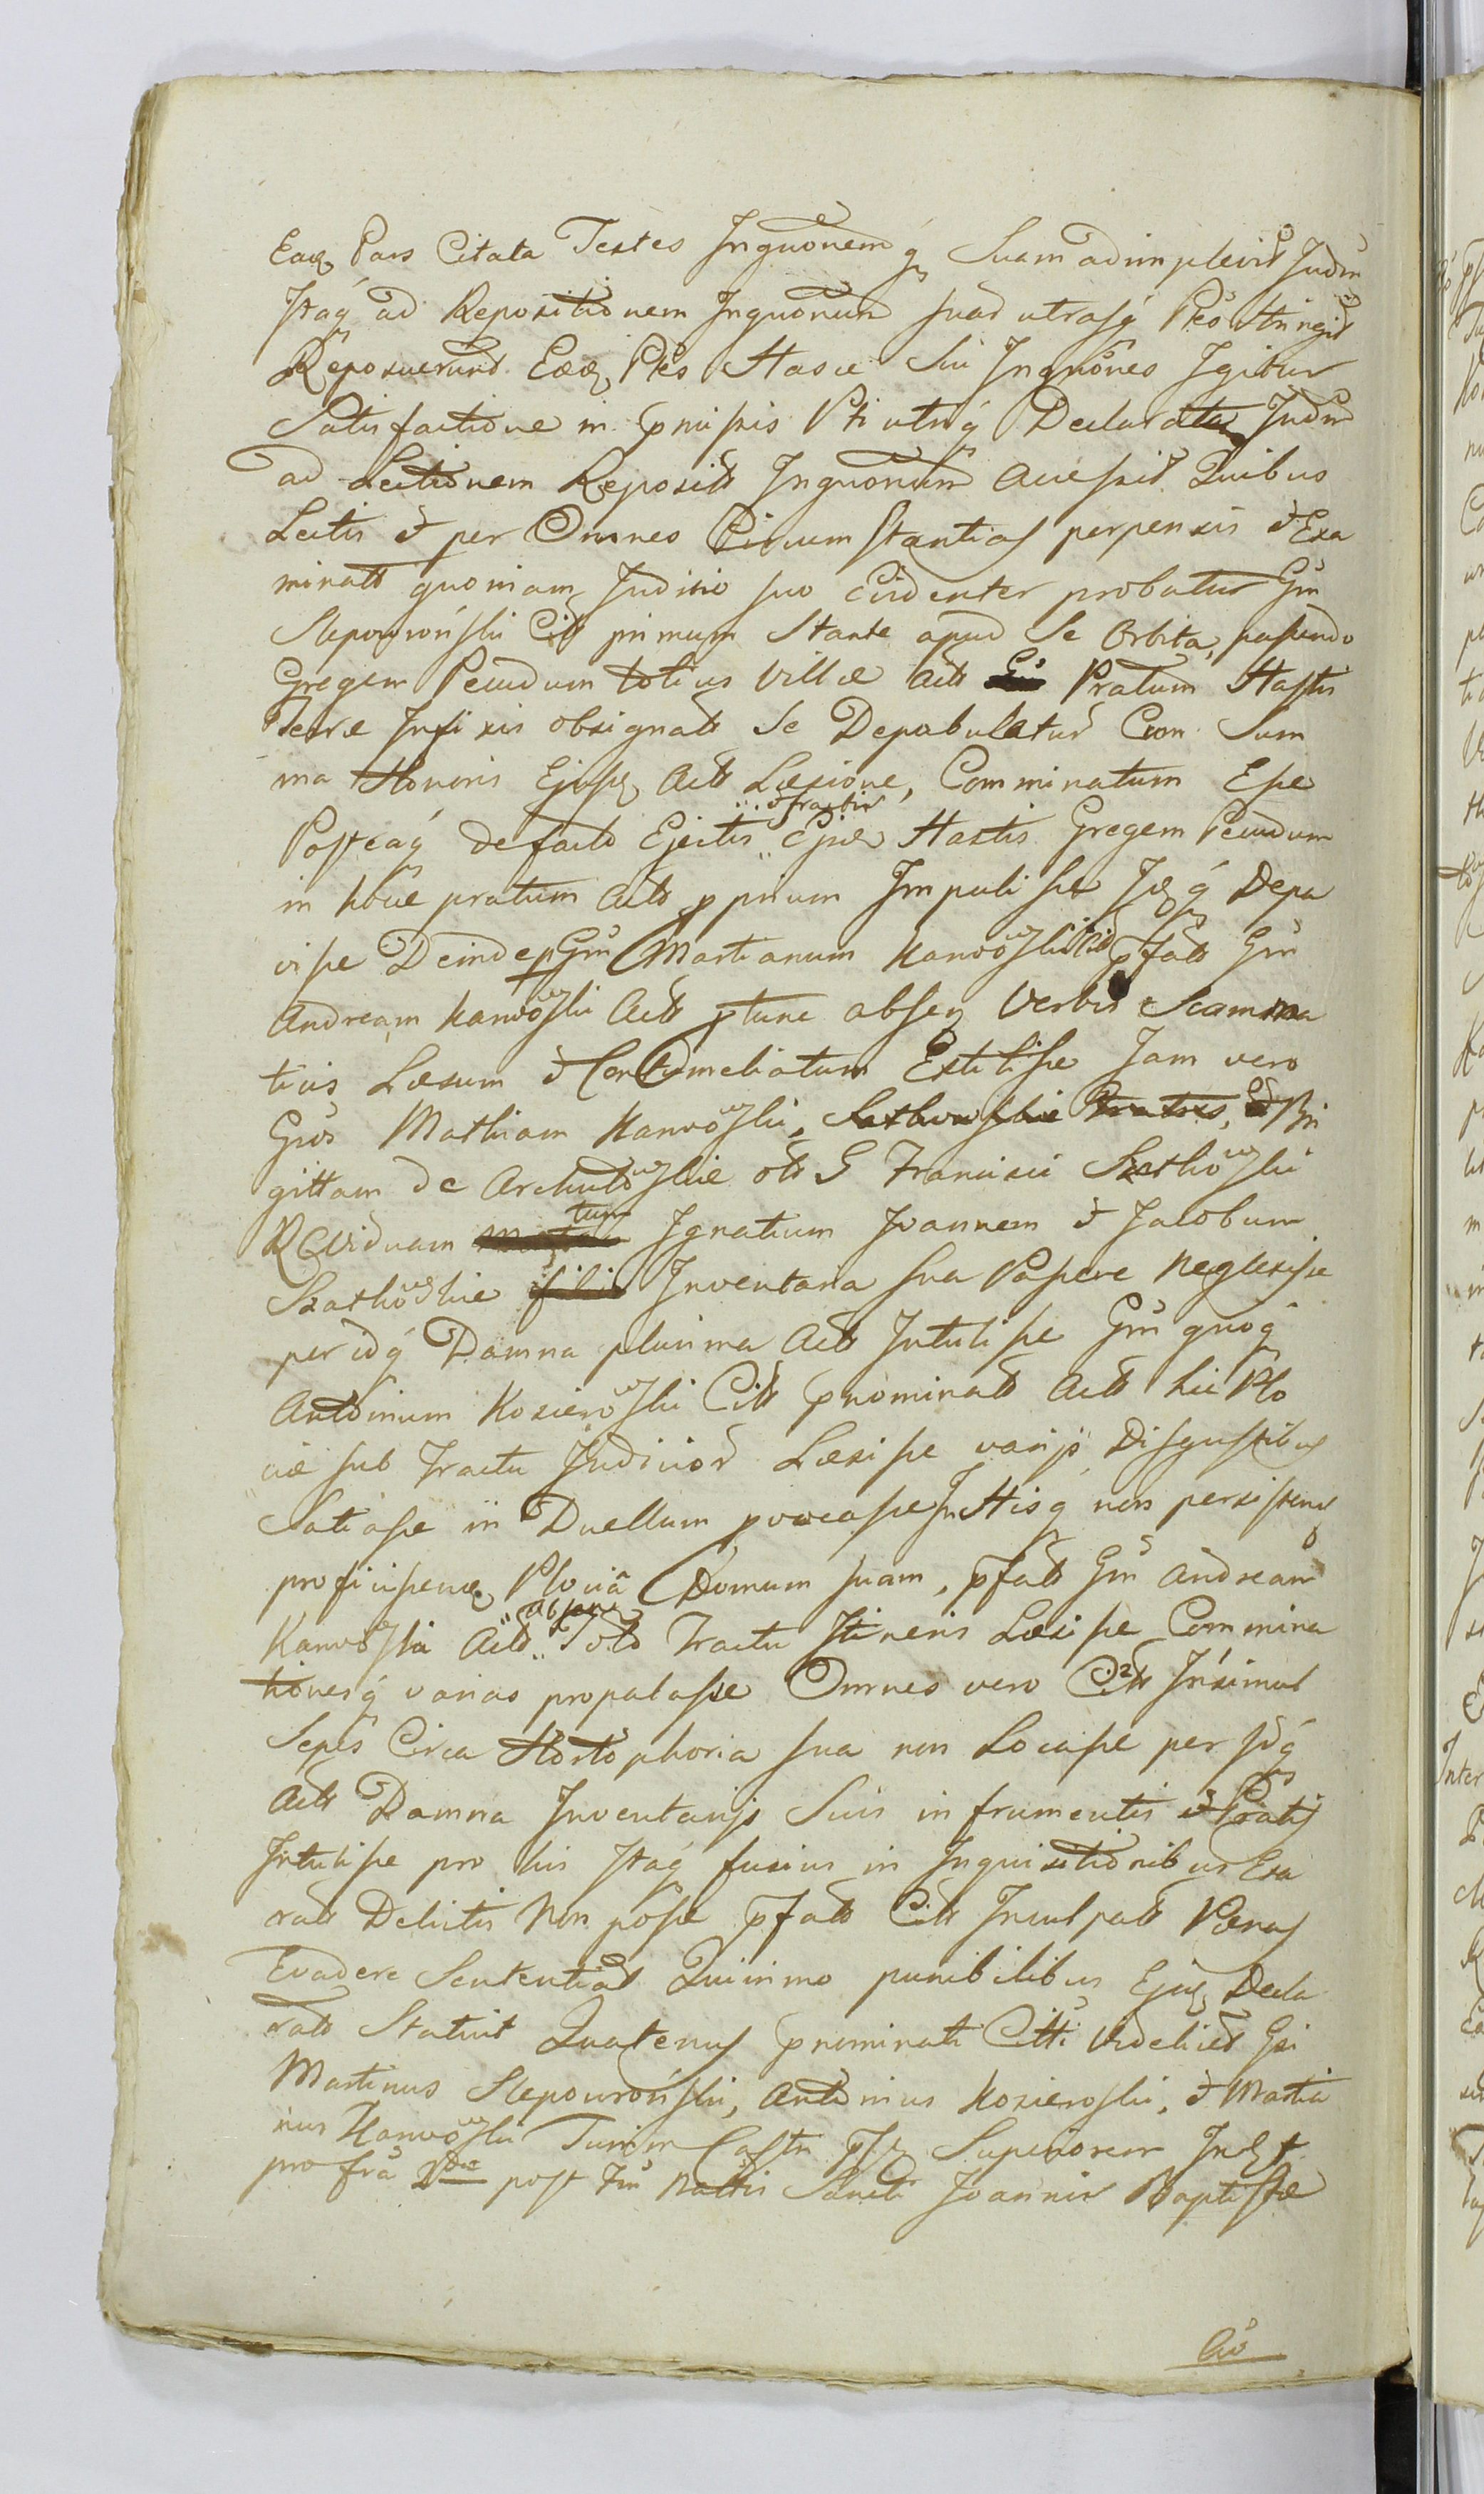 Eadē Pars Citata Testes Inquōnemq̨ Suam adimplevit Judm
Itaq̨ ad Repositionem Inquōnum suar̃ utrasq̨ Ptes stringit
Reposuerunt Eædē Ptes Hasce Sui Inquōnes Igitur
Satisfactione in præmissis Pti utriq̨ Declarata Judm
ad Lectionem Reposit̃ Inquōnum accessit Quibus
Lectis et per Omnes Circumstantias perpensis et Exa
minat̃ quoniam Judicio suo evidenter probatur Gm̃
Slepowroński Cit̃ primum Stante apud Se Orbita, pascendo
Gregem Pecudum totius Villæ Act̃ Pratum Hastis
Terræ Infixis obsignat̃ Se Depabulatur̃ Cum Sum
ma Honoris Ejusdē Act̃ Læsione, Comminatum Esse
Posteaq̨ de facto Ejectis et fractis Ejusdē Hastis Gregem Pecudum
in hocce pratum Act̃ pprium Impulisse Idq̨ Depa
visse Deinde p Gm̃ Martianum Karwowski Cit̃ pfat̃ Gm̃
Andream Karwowski Act̃ ptunc absen̄ Verbis Scamma
ticis Læsum et Contumeliatum Extitisse Jam vero
Gros Mathiam Karwowski, et Bri
gittam de Archutowskie ol̃ G Francisci Szatkowski
R Viduam tum Ignatium Joannem et Jacobum
Szatkowskie Inventaria sua Pascere neglexisse
per idq̨ Damna plurima Act̃ Intulisse Gm̃ quoq̨
Antonium Kozierowski Cit̃ prænominat̃ Act̃ hic Plo
ciæ sub Tractu Judicior̃ Læsisse varijs Disgustibus
Satiasse in Duellum provocasse In Hisq̨ non persistens
proficiscenē Plociâ Domum suam, pfat̃ Gm̃ Andream
Karwowski Act̃ absen̄ Toto Tractu Itineris Læsisse Commina
tionesq̨ varias propalasse Omnes vero Cit̃ Insimul
Sepes Circa Hortophoria sua non Locasse per idq̨
Act̃ Damna Inventarijs Suis in frumentis et Pratis
Intulisse pro his Itaq̨ fusius in Inquisitionibus Exa
rat̃ Delictis Non posse pfat̃ Cit̃ Inculpat̃ Pœnas
Evadere Sententiat Quinimo punibilibus Ejusdē Decla
rat̃ Statuit Quatenus prænominati Citti Videlicet Gsi
Martinus Slepowroński, Antonius Kozieroski, et Martia
nus Karwowski Turim Castri Superiorem
pro fra 2da post Fm̃ Nattis Sancti Joannis Baptistæ
Ad